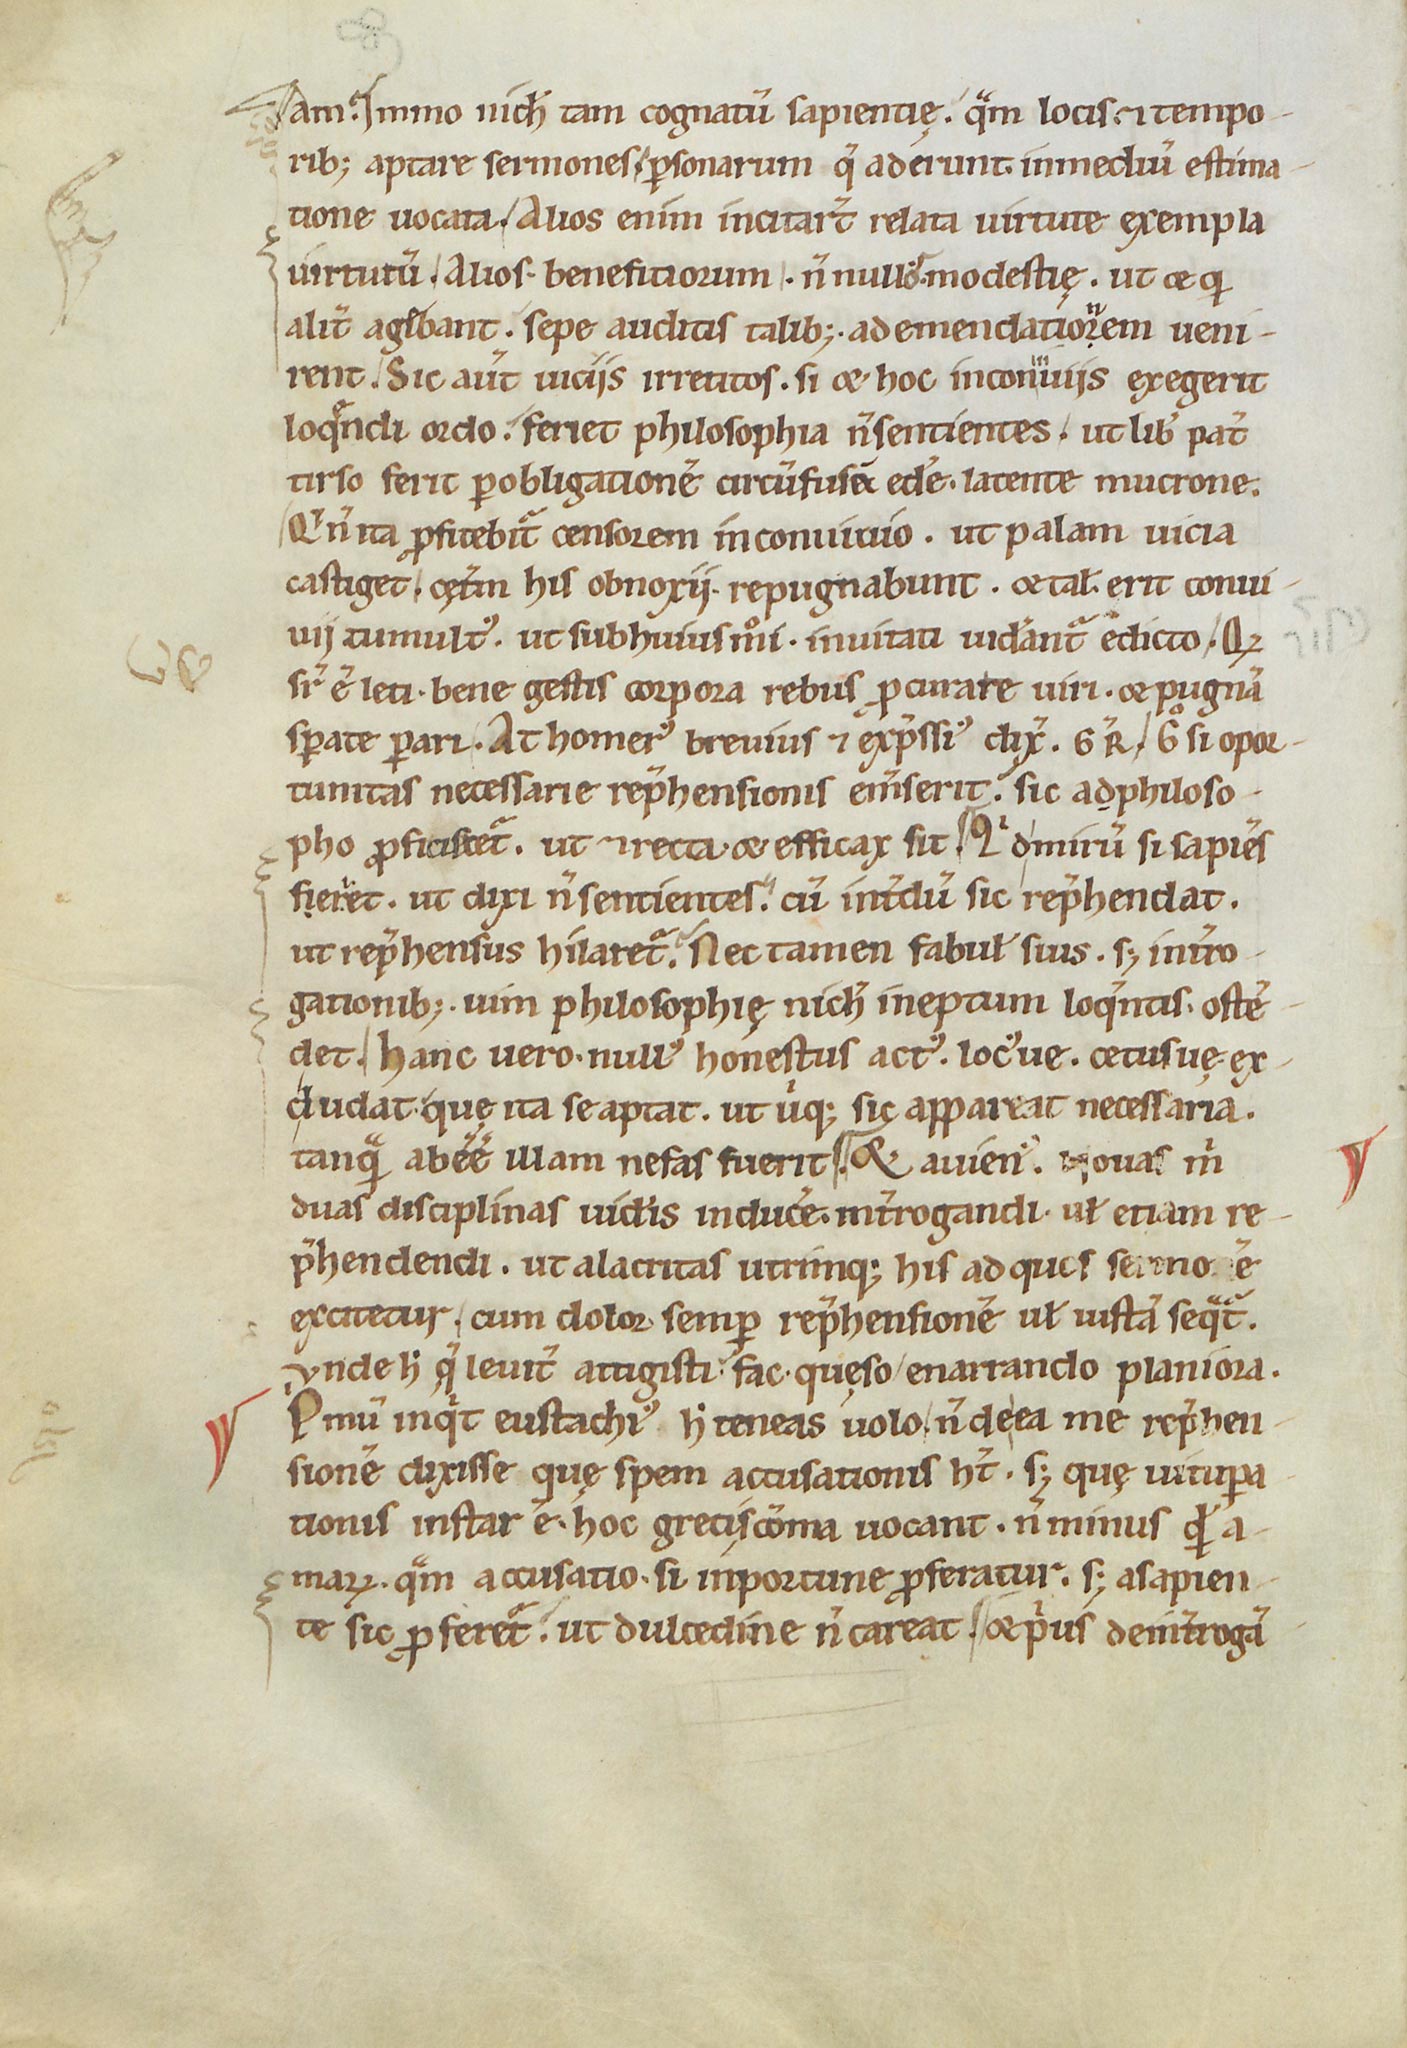 am. Immo nich̅ tam cognatū sapientię. qͣm locis. ⁊ tempo-
rib; aptare sermones. ꝑsonarum q̄ aderunt inmediū estima-
tione uocata. Alios enim incitar̄t relata uirtute exempla
uirtutū. Alios beneficiorum. n̄ nullos modestię. ut & qui
alit̄ agebant. sepe auditis talib;. ademendationem ueni-
rent. Sic aut̄ uiciis irretitos. si & hoc inconuiuiis exegerit
loqͣndi ordo. feriet philosophia n̄ sentientes. ut lib̄ pat̄
tirso ferit ꝑobligationē circūfusę edę. latente mucrone.
Qͥ n̄ ita ꝓfitebit̄ censorem inconuiuio. ut palam uicia
castiget. cęt̄m his obnoxii repugnabunt. & tal̄ erit conui-
uii tumultꝰ. ut subhuiusmͦi. inuitati uideant̄ edicto. Qꝝ
sīr ē leti. bene gestis corpora rebus ꝓcurate uiri. & pugnā
sꝑate ꝑari. At homerꝰ breuius ⁊ exp̄ssiꝰ dix̄. G R̄. Gͦ si opor-
tunitas necessarie rep̄hensionis em̄serit. sic aphiloso-
pho ꝓficiscet̄. ut ⁊ recta & efficax sit. Qͥd mirū si sapiēs
fieret. ut dixi n̄ sentientes. cū int̄dū sic rep̄hendat.
ut rep̄hensus hilaret̄. Nec tamen fabul̄ suis. s; int̄ro-
gationib;. uim philosophię nich̄ ineptum loqn̄tis. ostē-
det. Hanc uero nullꝰ honestus actꝰ. locꝰue. cetusuę ex-
cludat. quę ita se aptat. ut ubiq; sic appareat necessaria.
tanqͣ abeē̄ illam nefas fuerit. Et auienꝰ. nouas m̄
duas disciplinas uideris inducē. int̄rogandi. ul̄ etiam re-
p̄hendendi. ut alacritas utrinq; his ad quos sermo ē
excitetur. cum dolor semꝑ rep̄hensionē ul̄ iustā seqͣt̄.
ynde h̄ q̄ leuit̄ attigisti. fac quęso enarrando planiora.
Pͥmū inqͥt eustachiꝰ h̄ teneas uolo. n̄ de ea me rep̄hen-
sionē dixisse quę spem accusationis ht̄. s; quę uituꝑa-
tionis instar ē. hoc greci scōma uocant. n̄ minus qͥd a-
marꝝ. qͣm accusatio. si inportune ꝓferatur. s; asapien-
te sic ꝓferet̄. ut dulcedine n̄ careat. & pͥus deint̄rogā-